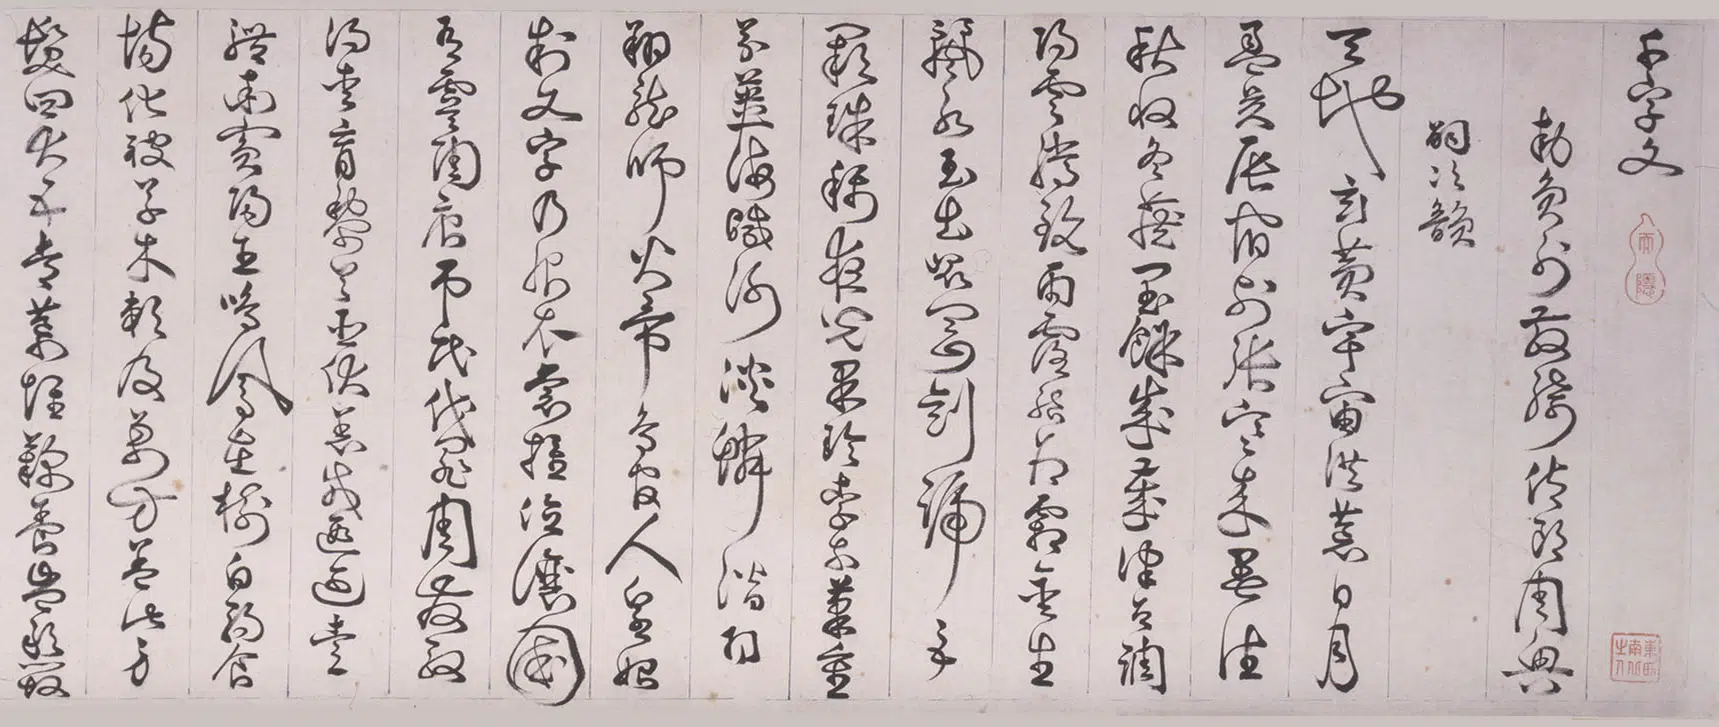 千字文
敕員外散騎侍郎周興
嗣次韻
天地玄黃宇宙洪荒日月
盈昃辰宿列張寒來暑往
秋收冬藏閏餘成歲律呂調
陽雲騰致雨露結為霜金生
麗水玉出崑岡劍號巨
闕珠稱夜光果珍李柰菜重
芥薑海鹹河淡鱗潛羽
翔龍師火帝鳥官人皇始
制文字乃服衣裳推位讓國
有虞陶唐弔民伐罪周發殷
湯愛育黎首臣伏羌戎遐邇壹
體率賓歸王鳴鳳在樹白駒食
場化被草木賴及萬方蓋此身
髮四大五常恭惟鞠養豈敢毀